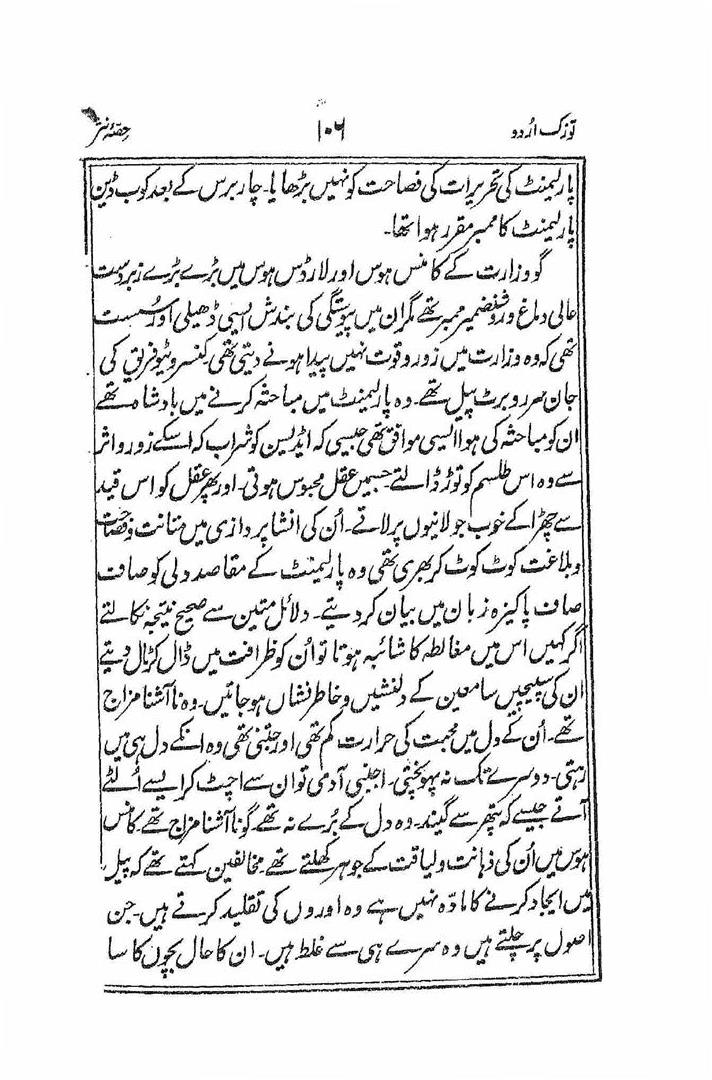 توزک اردو ۱۰۶ حصّۂ نثر
پارلیمنٹ کی تحریرات کی فصاحت کو نہیں بڑھایا۔ چار برس کے بعد کوب ڈین
پارلیمنٹ کا ممبر مقرر ہوا تھا۔
گو وزارت کے کامنس ہوس اور لارڈس ہوس میں بڑے بڑے زبردست
عالی دماغ و روشنضمیر ممبر تھے مگر ان میں پیوستگی کی بندش ایسی ڈھیلی اور سُست
تھی کہ وہ وزارت میں زور و قوت نہیں پیدا ہونے دیتی تھی۔ کنسرویٹیو فریق کی
جان سر روبرٹ پیل تھے۔ وہ پارلیمنٹ میں مباحثہ کرنے میں بادشاہ تھے
ان کو مباحثہ کی ہوا ایسی موافق تھی جیسی کہ ایڈیسن کو شراب کہ اسکے زور و اثر
سے وہ اس طلسم کو توڑ ڈالتے جسمیں عقل محبوس ہوتی۔ اور پھر عقل کو اس قید
سے چھڑا کے خوب جولانیوں پر لاتے۔ اُن کی انشا پردازی میں متانت و فصاحت
و بلاغت کوٹ کوٹ کر بھری تھی وہ پارلیمنٹ کے مقاصد دلی کو صاف
صاف پاکیزہ زبان میں بیان کر دیتے۔ دلائل متین سے صحیح نتیجہ نکالتے
اگر کہیں اس میں مغالطہ کا شائبہ ہوتا تو اُن کو ظرافت میں ڈال کر ٹال دیتے
ان کی سپیچیں سامعین کے دلنشیں و خاطر نشاں ہو جاتیں۔ وہ نا آشنا مزاج
تھے۔ اُن کے دل میں محبت کی حرارت کم تھی اور جتنی تھی وہ انکے دل ہی میں
رہتی۔ دوسرے تک نہ پہونچتی۔ اجنبی آدی تو ان سے اچٹ کر ایسے اُلٹے
آتے جیسے کہ پتھر سے گیند۔ وہ دل کے بُرے نہ تھے گو نا آشنا مزاج تھے۔ کامنس
ہوس میں اُن کی ذہانت و لیاقت کے جوہر کھلتے تھے۔ مخالفین کہتے تھے کہ پیل
میں ایجاد کرنے کا مادّہ نہیں ہے وہ اوروں کی تقلید کرتے ہیں۔ جن
اصول پر چلتے ہیں وہ سرے ہی سے غلط ہیں۔ ان کا حال بچوں کا سا